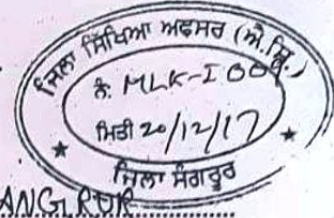 ਜਿਲਾ ਸਿੱਖਿਆ ਅਫਸਰ (ਐ.ਸਿ.)
ਨੰ. MLK-I
ਮਿਤੀ 20/12/17
ਜਿਲਾ ਸੰਗਰੂਰ
SANGRUR